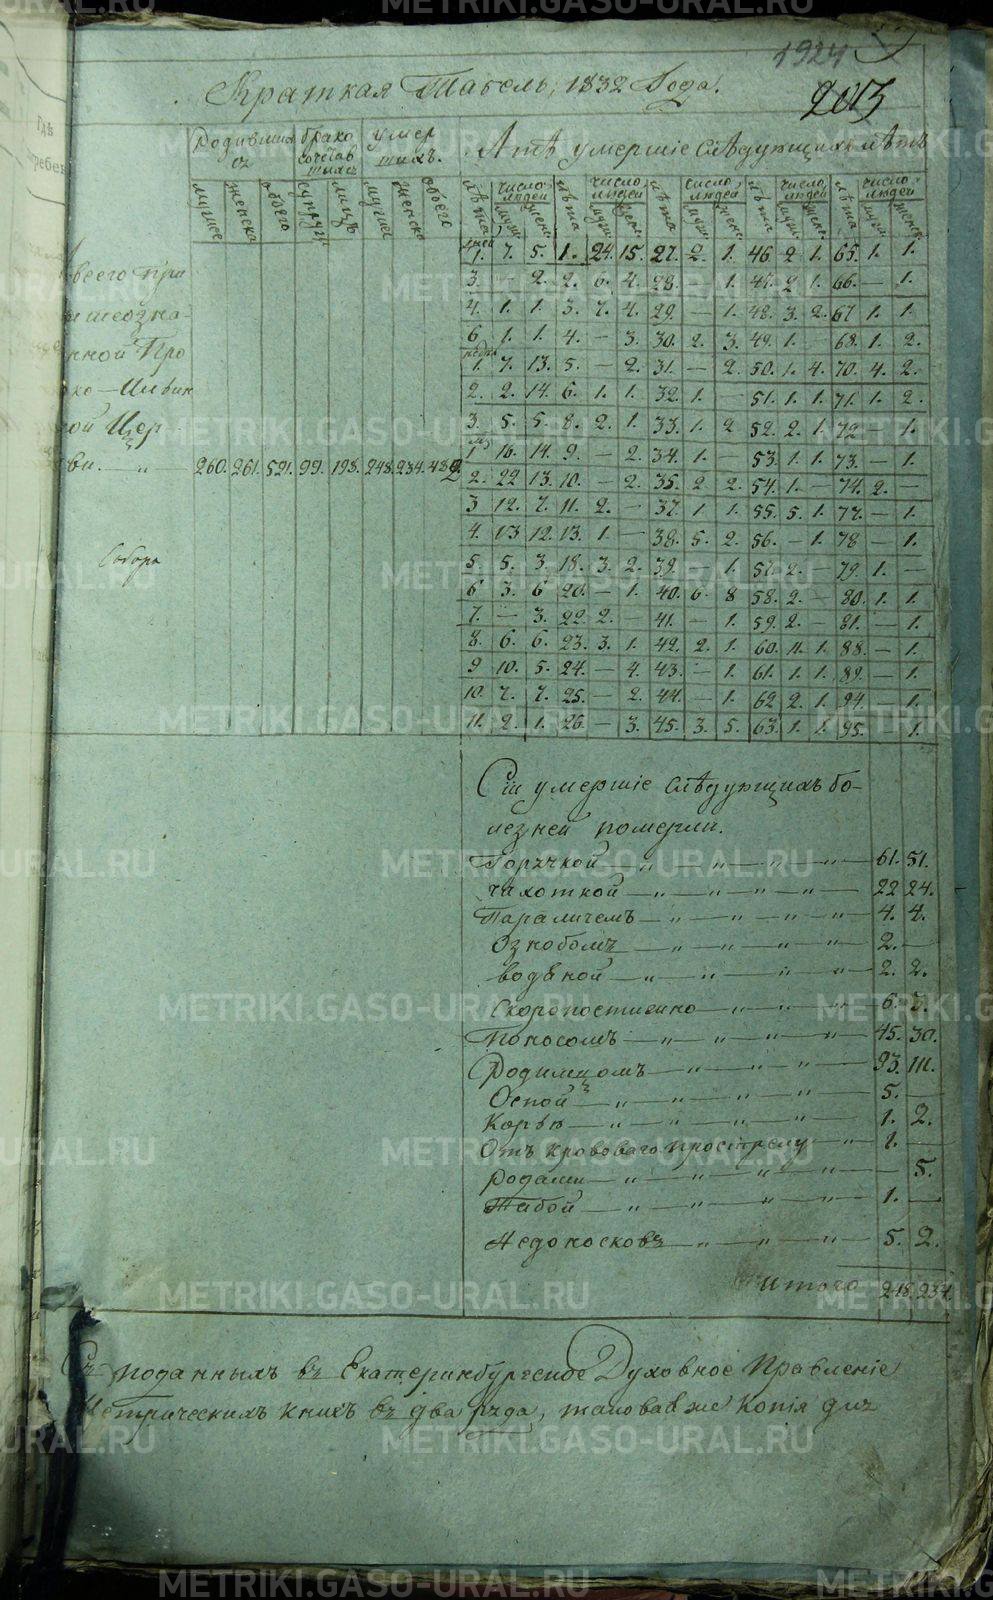 1924
2013
Краткая Табель, 1832 Года.
Родивших
ся
брако
сочетав
шихся
умер
шихъ.
А тѣ умершіе слѣдующихъ лѣтъ
мужес
женска
обоего
супруги
лицъ
мужес
женска
обоего
лѣта
число людей
мужс.
женс.
лѣта
число людей
мужс.
женс.
лѣта
число людей
мужс.
женс.
лѣта
число людей
мужс.
женс.
лѣта
число людей
мужс.
женс.
всего при
ной Про
ко-Ильин
ой Цер
ви. „ 260. 261. 521. 99. 198. 248. 234. 482.
Собора
дней
1. 7. 5. 1. 24. 15. 27. 2. 1. 46 2 1. 65. 1. 1.
3. — 2. 2. 6. 4. 28. 1. 47. 2 1. 66. — 1.
4. 1. 1. 3. 7. 4. 29. — 1. 48. 3. 2. 67 1. 1.
6. 1. 1. 4. — 3. 30. 2. 3. 49. 1. — 68. 1. 2.
недел
1. 7. 13. 5. — 2. 31. — 2. 50. 1. 4. 70. 4. 2.
2. 2. 14. 6. 1. 1. 32. 1. — 51. 1. 1. 71. 1. 2.
3. 5. 5. 8. 2. 1. 33. 1. 2 52. 2. 1. 72 — 1.
мц
1 16. 14. 9. — 2. 34. 1. — 53. 1. 1. 73. — 1.
2. 22 13. 10. — 2. 35. 2 2. 54. 1. — 74. 2. —
3 12. 7. 11. 2. — 37. 1. 1. 55. 5. 1. 77. — 1.
4. 13 12. 13. 1. — 38. 5. 2. 56. — 1. 78 — 1.
5. 5. 3. 18. 3. 2. 39. — 1. 57. 2. — 79. 1. —
6 3. 6 20. — 1. 40. 6. 8 58. 2. — 80. 1. 1.
7. — 3. 22. 2. — 41. — 1. 59. 2. — 81. — 1.
8. 6. 6. 23. 3. 1. 42. 2. 1. 60. 11. 1. 88. — 1.
9 10. 5. 24. — 4. 43. — 1. 61. 1. 1. 89. — 1.
10. 7. 7. 25. — 2. 44. — 1. 62 2. 1. 94. — 1.
11. 2. 1. 26. — 3. 45. 3. 5. 63. 1. 1. 95. 1.
Сіи умершіе слѣдующихъ бо-
лезней померли.
Горячкой — „ — „ — „ — „ — 61. 51.
чахоткой — „ — „ — „ — „ — 22 24.
Параличемъ — „ — „ — „ — „ — 4. 4.
Ознобомъ — „ — „ — „ — „ — 2. —
водяной — „ — „ — „ — „ — 2. 2.
Скоропостижно — „ — „ — „ — 6. 3.
Поносомъ — „ — „ — „ — „ — 45. 30.
Родимцомъ — „ — „ — „ — 93. 111.
Оспой — „ — „ — „ — „ — 5. —
Корью — „ — „ — „ — „ — 1. 2.
Отъ кроваваго прострелу — „ — 1. —
Родами — „ — „ — „ — „ — — 5.
— „ — „ — „ — „ — 1. —
Недоносковъ — „ — „ — „ — 5. 2.
Итого 248. 234.
Съ поданныхъ въ Екатеринбургское Духовное Правленіе
Метрическихъ книхъ въ два ряда, таковаяже Копія для
METRIKI.GASO-URAL.RU